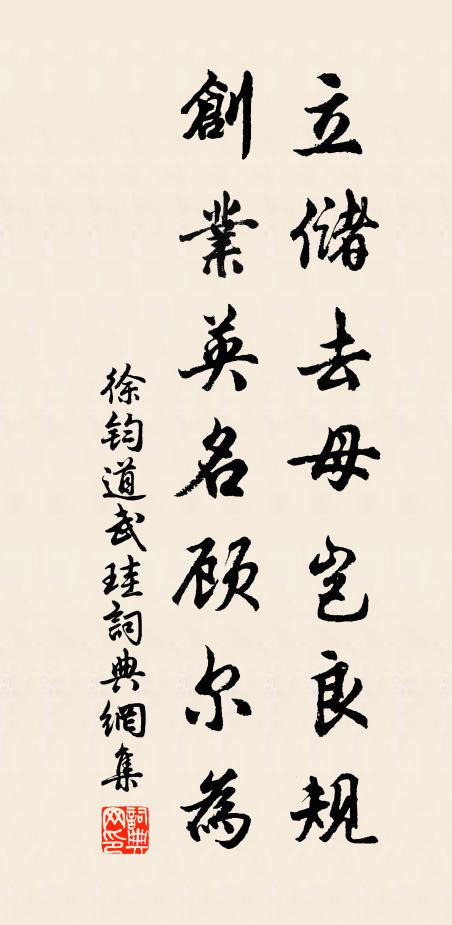 立儲去母豈良規
創業英名顾尔為
徐钧道武珪詞典網集
詞典网印